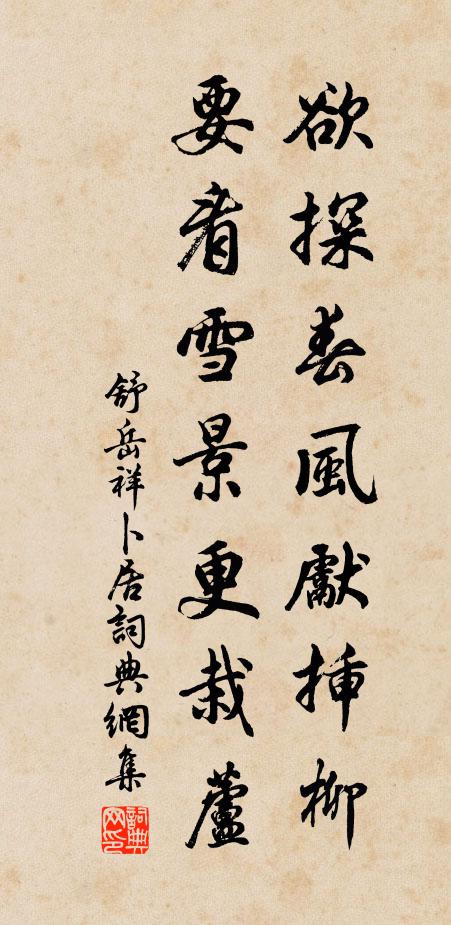 欲探春風獻插柳
要看雪景更栽蘆
舒岳祥卜居詞典網集
詞典网印